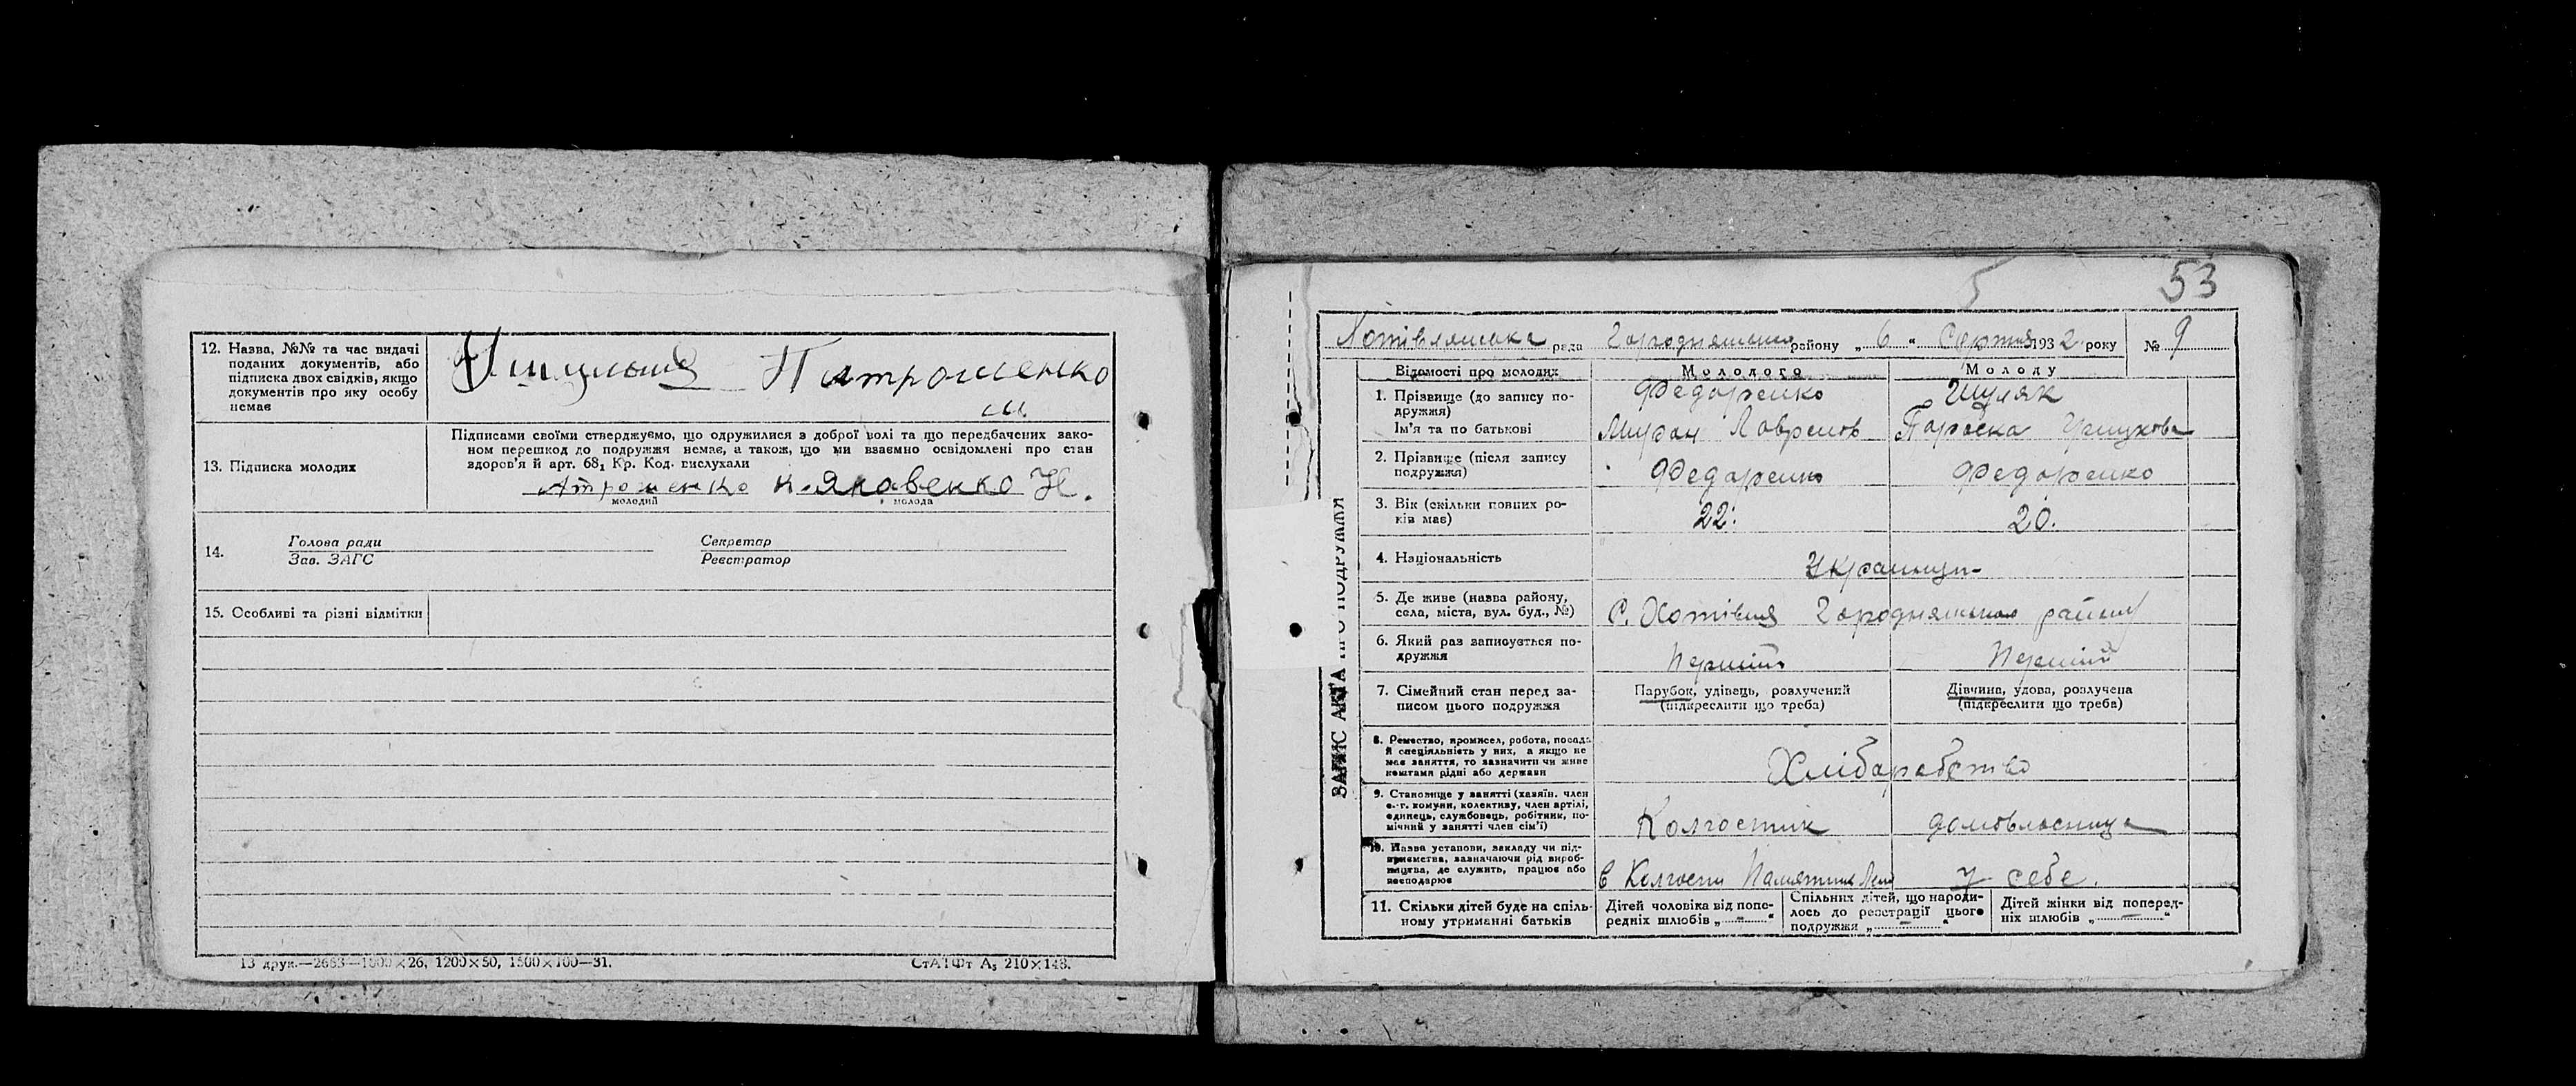 12. Назва, №№ та час видачі
поданих документів, або
підписка двох свідків, якщо
документів про яку особу
немає
Патрошенко
13. Підписка молодих
Підписами своїми стверджуємо, що одружилися з доброї волі та що передбачених зако-
ном перешкод до подружжя немає, а також, що ми взаємно освідомлені про стан
здоров'я й арт. 68₁ Кр. Код. вислухали
Атрошенко К. Яковенко Н.
молодий молода
14. Голова ради Секретар
Зав. ЗАГС Реєстратор
15. Особливі та різні відмітки
13 друк.—2683—1000×26, 1200×50, 1500×100—31.
СтАТФт А₅ 210×148.
5 53
ЗАПИС АКТА ПРО ПОДРУЖЖЯ
рада Городнянського району „ 6 “ 1932 року № 9
Відомості про молодих Молодого Молоду
1. Прізвище (до запису по-
дружжя)
Ім'я та по батькові
Федоренко Шуляк
Лавренов Параска Грицкова
2. Прізвище (після запису
подружжя)
Федаренко Федоренко
3. Вік (скільки повних ро-
ків має)
22. 20.
4. Національність
Українці
5. Де живе (назва району,
села, міста, вул. буд., №)
С. Хотівля Городнянського району
6. Який раз записується по-
дружжя
Перший Перший
7. Сімейний стан перед за-
писом цього подружжя
Парубок, удівець, розлучений
(підкреслити що треба)
Дівчина, удова, розлучена
(підкреслити що треба)
8. Ремество, промисел, робота, посада
й спеціяльність у них, а якщо не
має заняття, то зазначити чи живе
коштами рідні або держави
Хлібаробство
9. Становище у занятті (хазяїн, член
с.-г. комуни, колективу, член артілі,
одинець, службовець, робітник, по-
мічний у занятті член сім'ї)
Колгостник домовласница
10. Назва установи, закладу чи під-
приємства, зазначаючи рід вироб-
ництва, де служить, працює або
господарює
в Колгоспи Памятник у себе.
11. Скільки дітей буде на спіль-
ному утриманні батьків
Дітей чоловіка від попе-
редніх шлюбів „ – “
Спільних дітей, що народи-
лось до реєстрації цього
подружжя „ – “
Дітей жінки від поперед-
ніх шлюбів „ – “